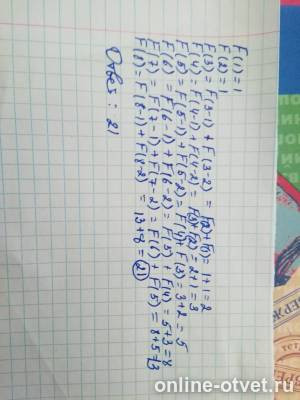 F(1) = 1
F(2) = 1
F(3) = F(3-1) + F(3-2) = F(2)+F(1) = 1+1=2
F(4) = F(4-1) + F(4-2) = F(3)+F(2) = 2+1 = 3
F(5) = F(5-1) + F(5-2) = F(4)+F(3) = 3+2 = 5
F(6) = F(6-1) + F(6-2) = F(5) + F(4) = 5+3=8
F(7) = F(7-1) + F(7-2) = F(6) + F(5) = 8+5=13
F(8) = F(8-1) + F(8-2) = 13+8 = 21
Ответ: 21
online-otvet.ru